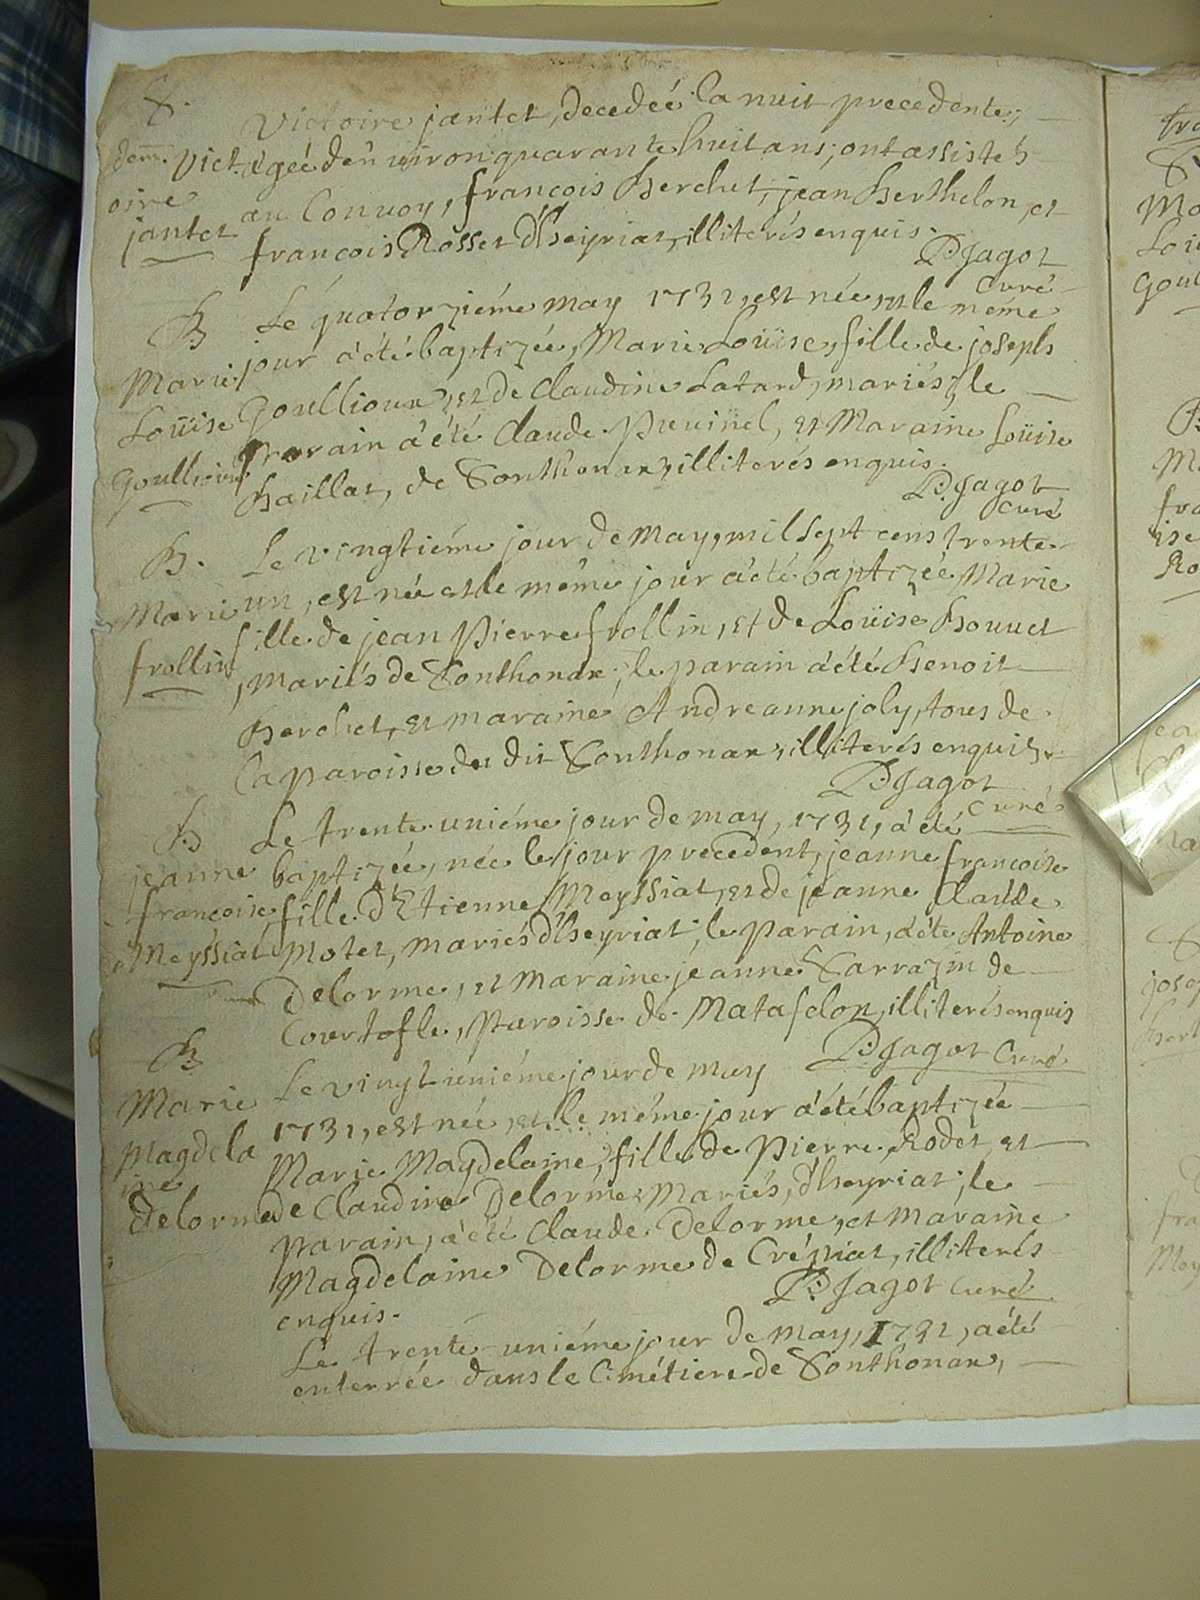 S.
dem. Vict
oire
jantet
Victoire jantet, decedeé la nuit precedente,
agéé d'en viron quarante huit ans; ont assistéz
au Convoy, françois Berchet, jean Berthelon, et
francois Rosset d'heyriat, illiterés enquis.
P. Jagot
Curé
B
Marie
Loüise
Goullioux
Le quatorziéme may 1731, est née, et le méme
jour a été baptizée, Marie Loüise, fille de joseph
Goullioux, et de Claudine Latard, mariés; le
Parain a été Claude Prevircl, et Maraine Loüise
Baillat, de Sonthonax, illiterés enquis.
P. Jagot
Curé
B.
Marie
frollin
Le vingtiéme jour de May, mil sept cens trente
un, est née et le méme jour a été baptizée, Marie
fille de jean Pierre frollin, et de Loüise Bouvet
, mariés de Sonthonax; le parain a été Benoit
Berchet, et maraine Andreanne joly, tous de
la paroisse du dit Sonthonax, illiterés enquis.
P. Jagot
Curé
B
jeanne
francoise
Meyssiat
Le trente uniéme jour de may, 1731, a été
baptizée, née le jour precedent, jeanne francoise
fille d'Etienne Meyssiat, et de jeanne Claude
Motet, mariés d'heyriat; le parain, a été Antoine
Delorme, et Maraine jeanne Sarrazin de
Courtofle, Paroisse de Matafelon, illiterés enquis
P. Jagot Curé
B
Marie
Magdela
ine
Delorme
Le vingt uniéme jour de may
1731, est née, et le méme jour a été baptizée
Marie Magdelaine, fille de Pierre Rodet, et
de Claudine Delorme, Mariés, d'heyriat; le
parain, a été Claude Delorme, et Maraine
Magdelaine Delorme de Crépiat, illiterés
enquis.
P. Jagot Curé
Le trente-uniéme jour de may, 1731, a été
enterrée dans le Cimétiere de Sonthonax,